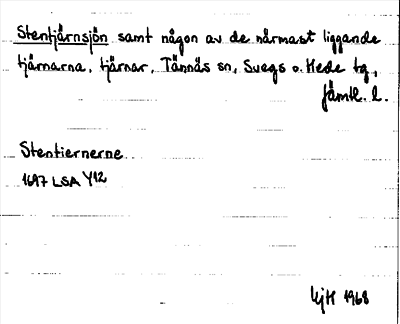 Stentjärnsjön samt någon av de närmast liggande
tjärnarna, tjärnar, Tännäs sn, Svegs o. Hede tg,
Jämtl. l.
Stentiernerne
1697 LSA Y12
1968